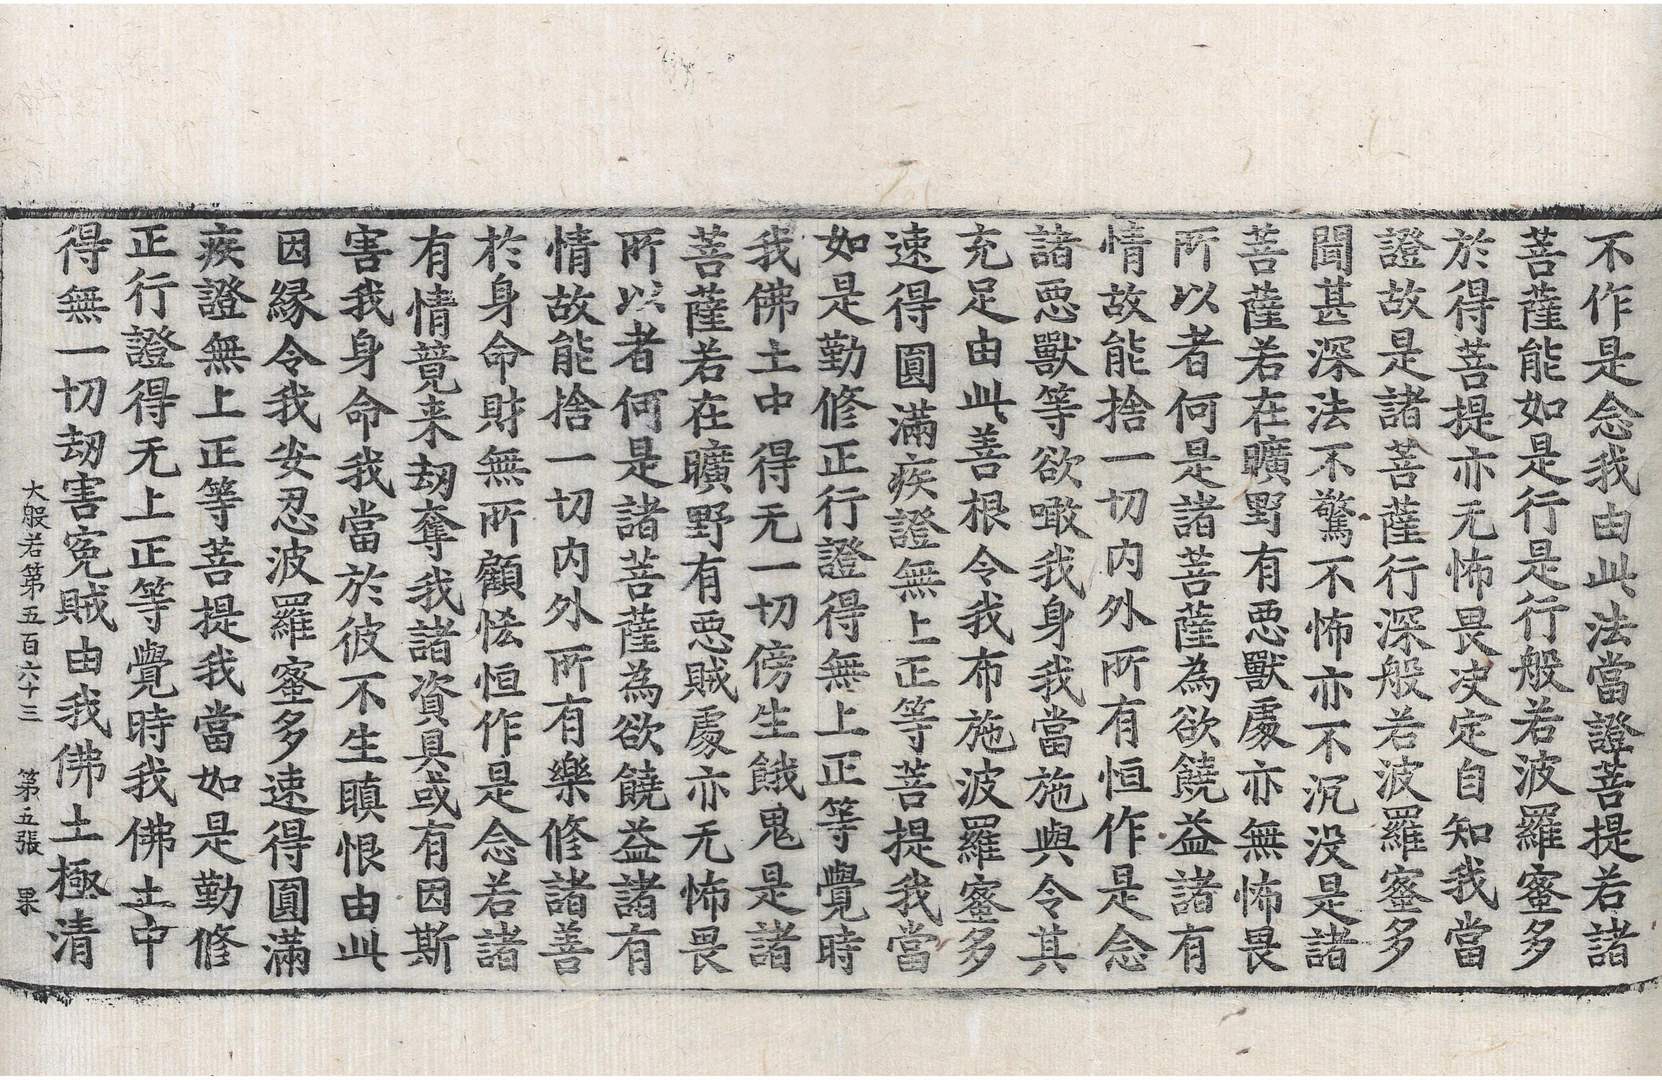 不作是念我由此法當證菩提若諸
菩薩能如是行是行般若波羅蜜多
於得菩提亦无怖畏決定自知我當
證故是諸菩薩行深般若波羅蜜多
聞甚深法不驚不怖亦不沉没是諸
菩薩若在曠野有惡獸處亦無怖畏
所以者何是諸菩薩為欲饒益諸有
情故能捨一切内外所有恒作是念
諸惡獸等欲噉我身我當施與令其
充足由此善根令我布施波羅蜜多
速得圓滿疾證無上正等菩提我當
如是勤修正行證得無上正等覺時
我佛土中得无一切傍生餓鬼是諸
菩薩若在曠野有惡賊處亦无怖畏
所以者何是諸菩薩為欲饒益諸有
情故能捨一切内外所有樂修諸善
於身命財無所顧悋恒作是念若諸
有情競来劫奪我諸資具或有因斯
害我身命我當於彼不生瞋恨由此
因縁令我安忍波羅蜜多速得圓滿
疾證無上正等菩提我當如是勤修
正行證得无上正等覺時我佛土中
得無一切劫害寃賊由我佛土極清
大般若第五百六十三 第五張 果